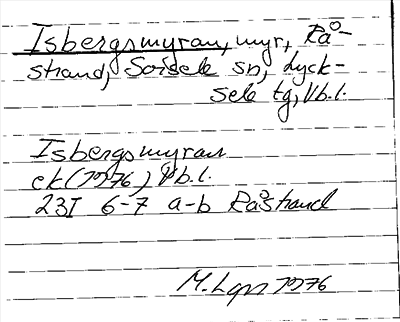 Isbergsmyran, myr, Rå-
strand, Sorsele sn, Lyck-
sele tg, Vb.l.
Isbergsmyran
ek (1976) Vb.l.
23I 6-7 a-b Råstrand
M. Lgn 1976